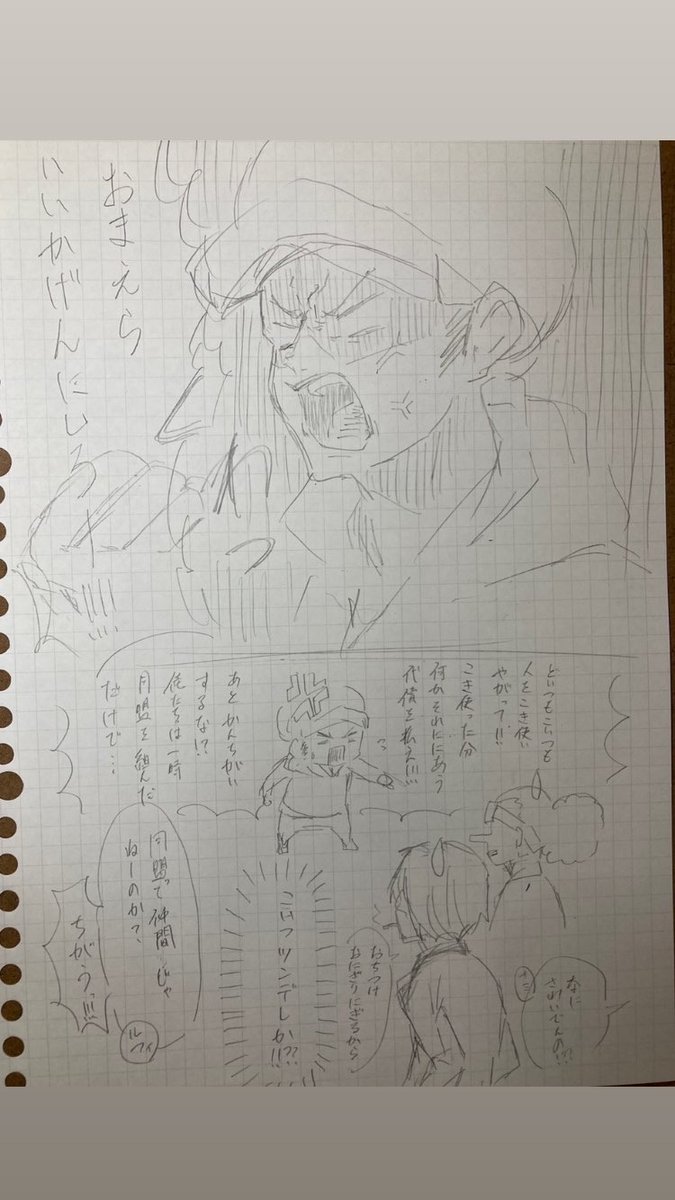 おまえら
いいかげんにしろ
どいつもこいつも
人をこき使い
やがって!!!
こき使った分
何かそれににあう
代償を払え!!!
あとかんちがい
するな!?
俺たちは一時
同盟を組んだ
だけで…
なに
されてんの!?
ナミ
おちつけ
おにぎりにぎるから
こいつツンデレか!!??
同盟って仲間じゃ
ねーのか?
ルフィ
ちがうっ!!!